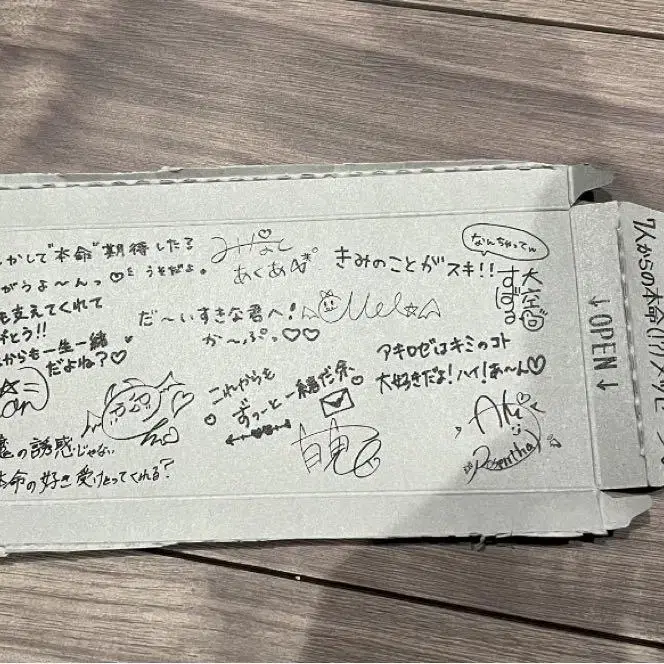 かして"本命"期待した?
がうよ〜んっ♡
うそだよ。
みなと
あくあ
きみのことがスキ!!
なんちゃってw
大空
すばる
も支えてくれて
がとう!!
からも一生一緒
だよね?♡
だ〜いすきな君へ!
か〜ぷっ♡♡
Mel
アキロゼはキミのコト
大好きだよ!ハイ!あ〜ん♡
これからも
ずっーと一緒だ余
の誘惑じゃない
本命の好き受けとってくれる?
Aki
Rosenthal
↓OPEN↓
7人からの本命(!?)メッセ